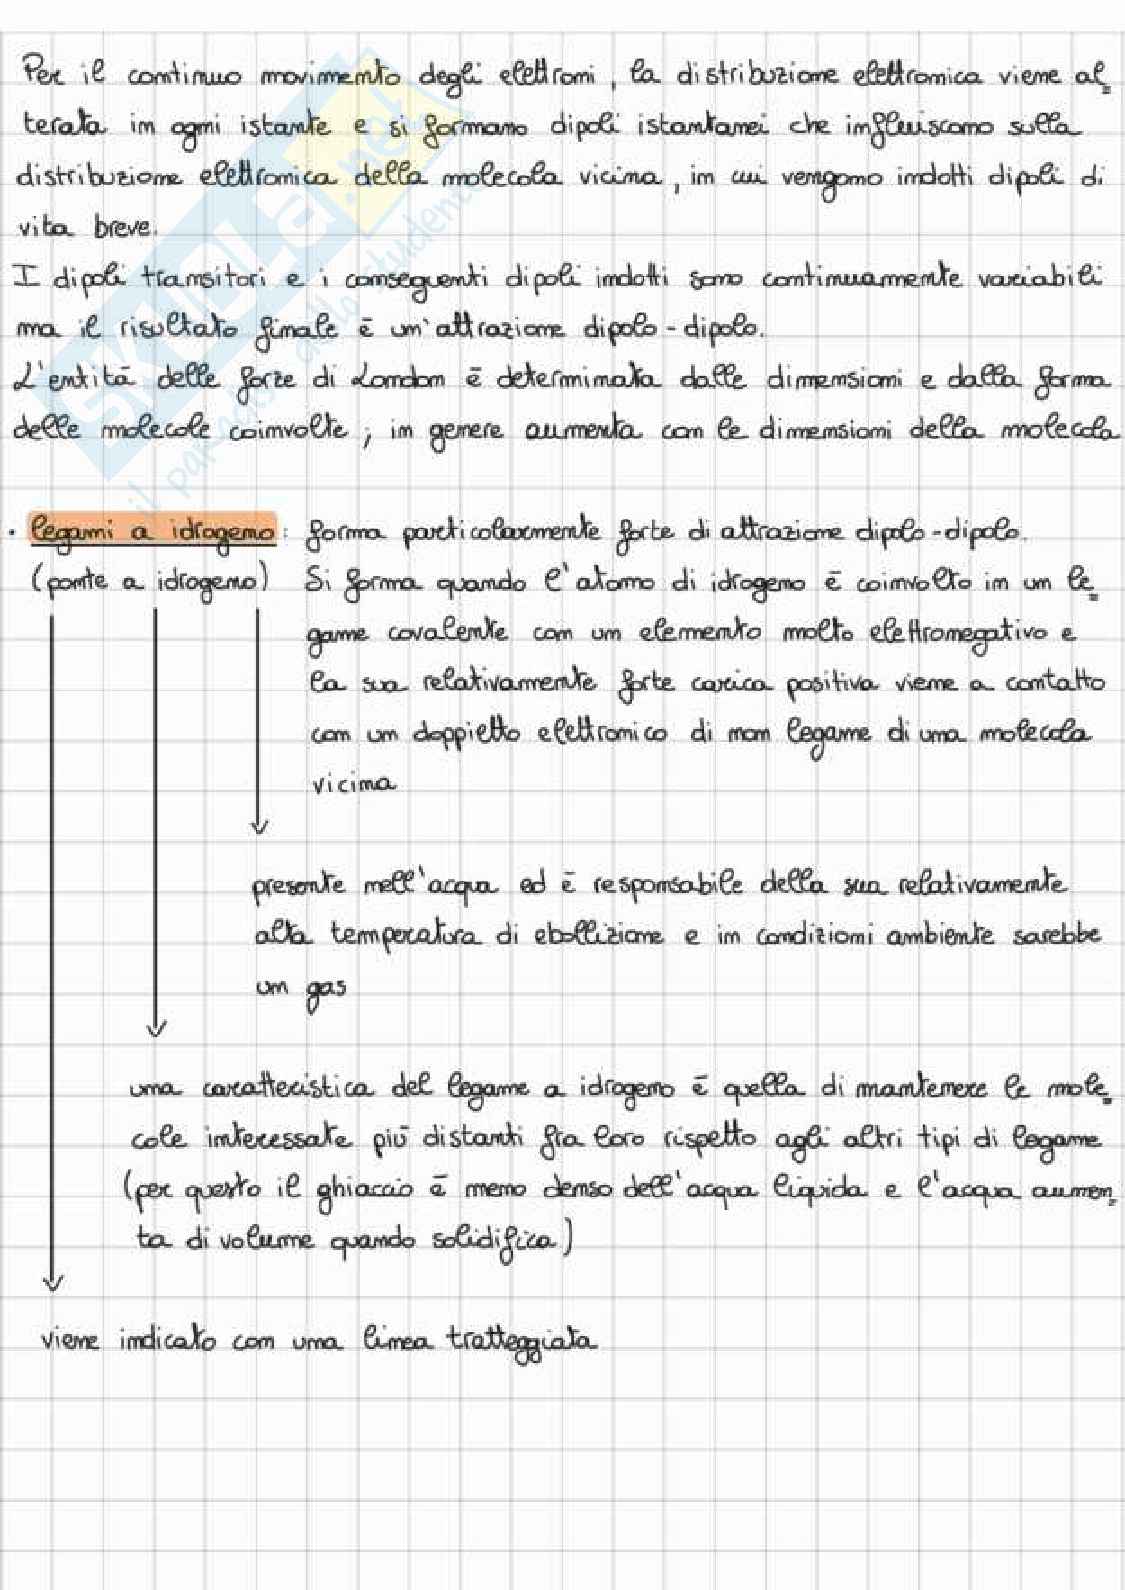 Per il continuo movimento degli elettroni, la distribuzione elettronica viene al=
terata in ogni istante e si formano dipoli istantanei che influiscono sulla
distribuzione elettronica della molecola vicina, in cui vengono indotti dipoli di
vita breve.
I dipoli transitori e i conseguenti dipoli indotti sono continuamente variabili
ma il risultato finale è un'attrazione dipolo-dipolo.
L'entità delle forze di London è determinata dalle dimensioni e dalla forma
delle molecole coinvolte; in genere aumenta con le dimensioni della molecola
• legami a idrogeno: forma particolarmente forte di attrazione dipolo-dipolo.
(ponte a idrogeno) Si forma quando l'atomo di idrogeno è coinvolto in un le=
game covalente con un elemento molto elettronegativo e
la sua relativamente forte carica positiva viene a contatto
con un doppietto elettronico di non legame di una molecola
vicina
presente nell'acqua ed è responsabile della sua relativamente
alta temperatura di ebollizione e in condizioni ambiente sarebbe
un gas
una caratteristica del legame a idrogeno è quella di mantenere le mole=
cole interessate più distanti fra loro rispetto agli altri tipi di legame
(per questo il ghiaccio è meno denso dell'acqua liquida e l'acqua aumen=
ta di volume quando solidifica)
viene indicato con una linea tratteggiata
SKUOLA.net
il paradiso dello studente